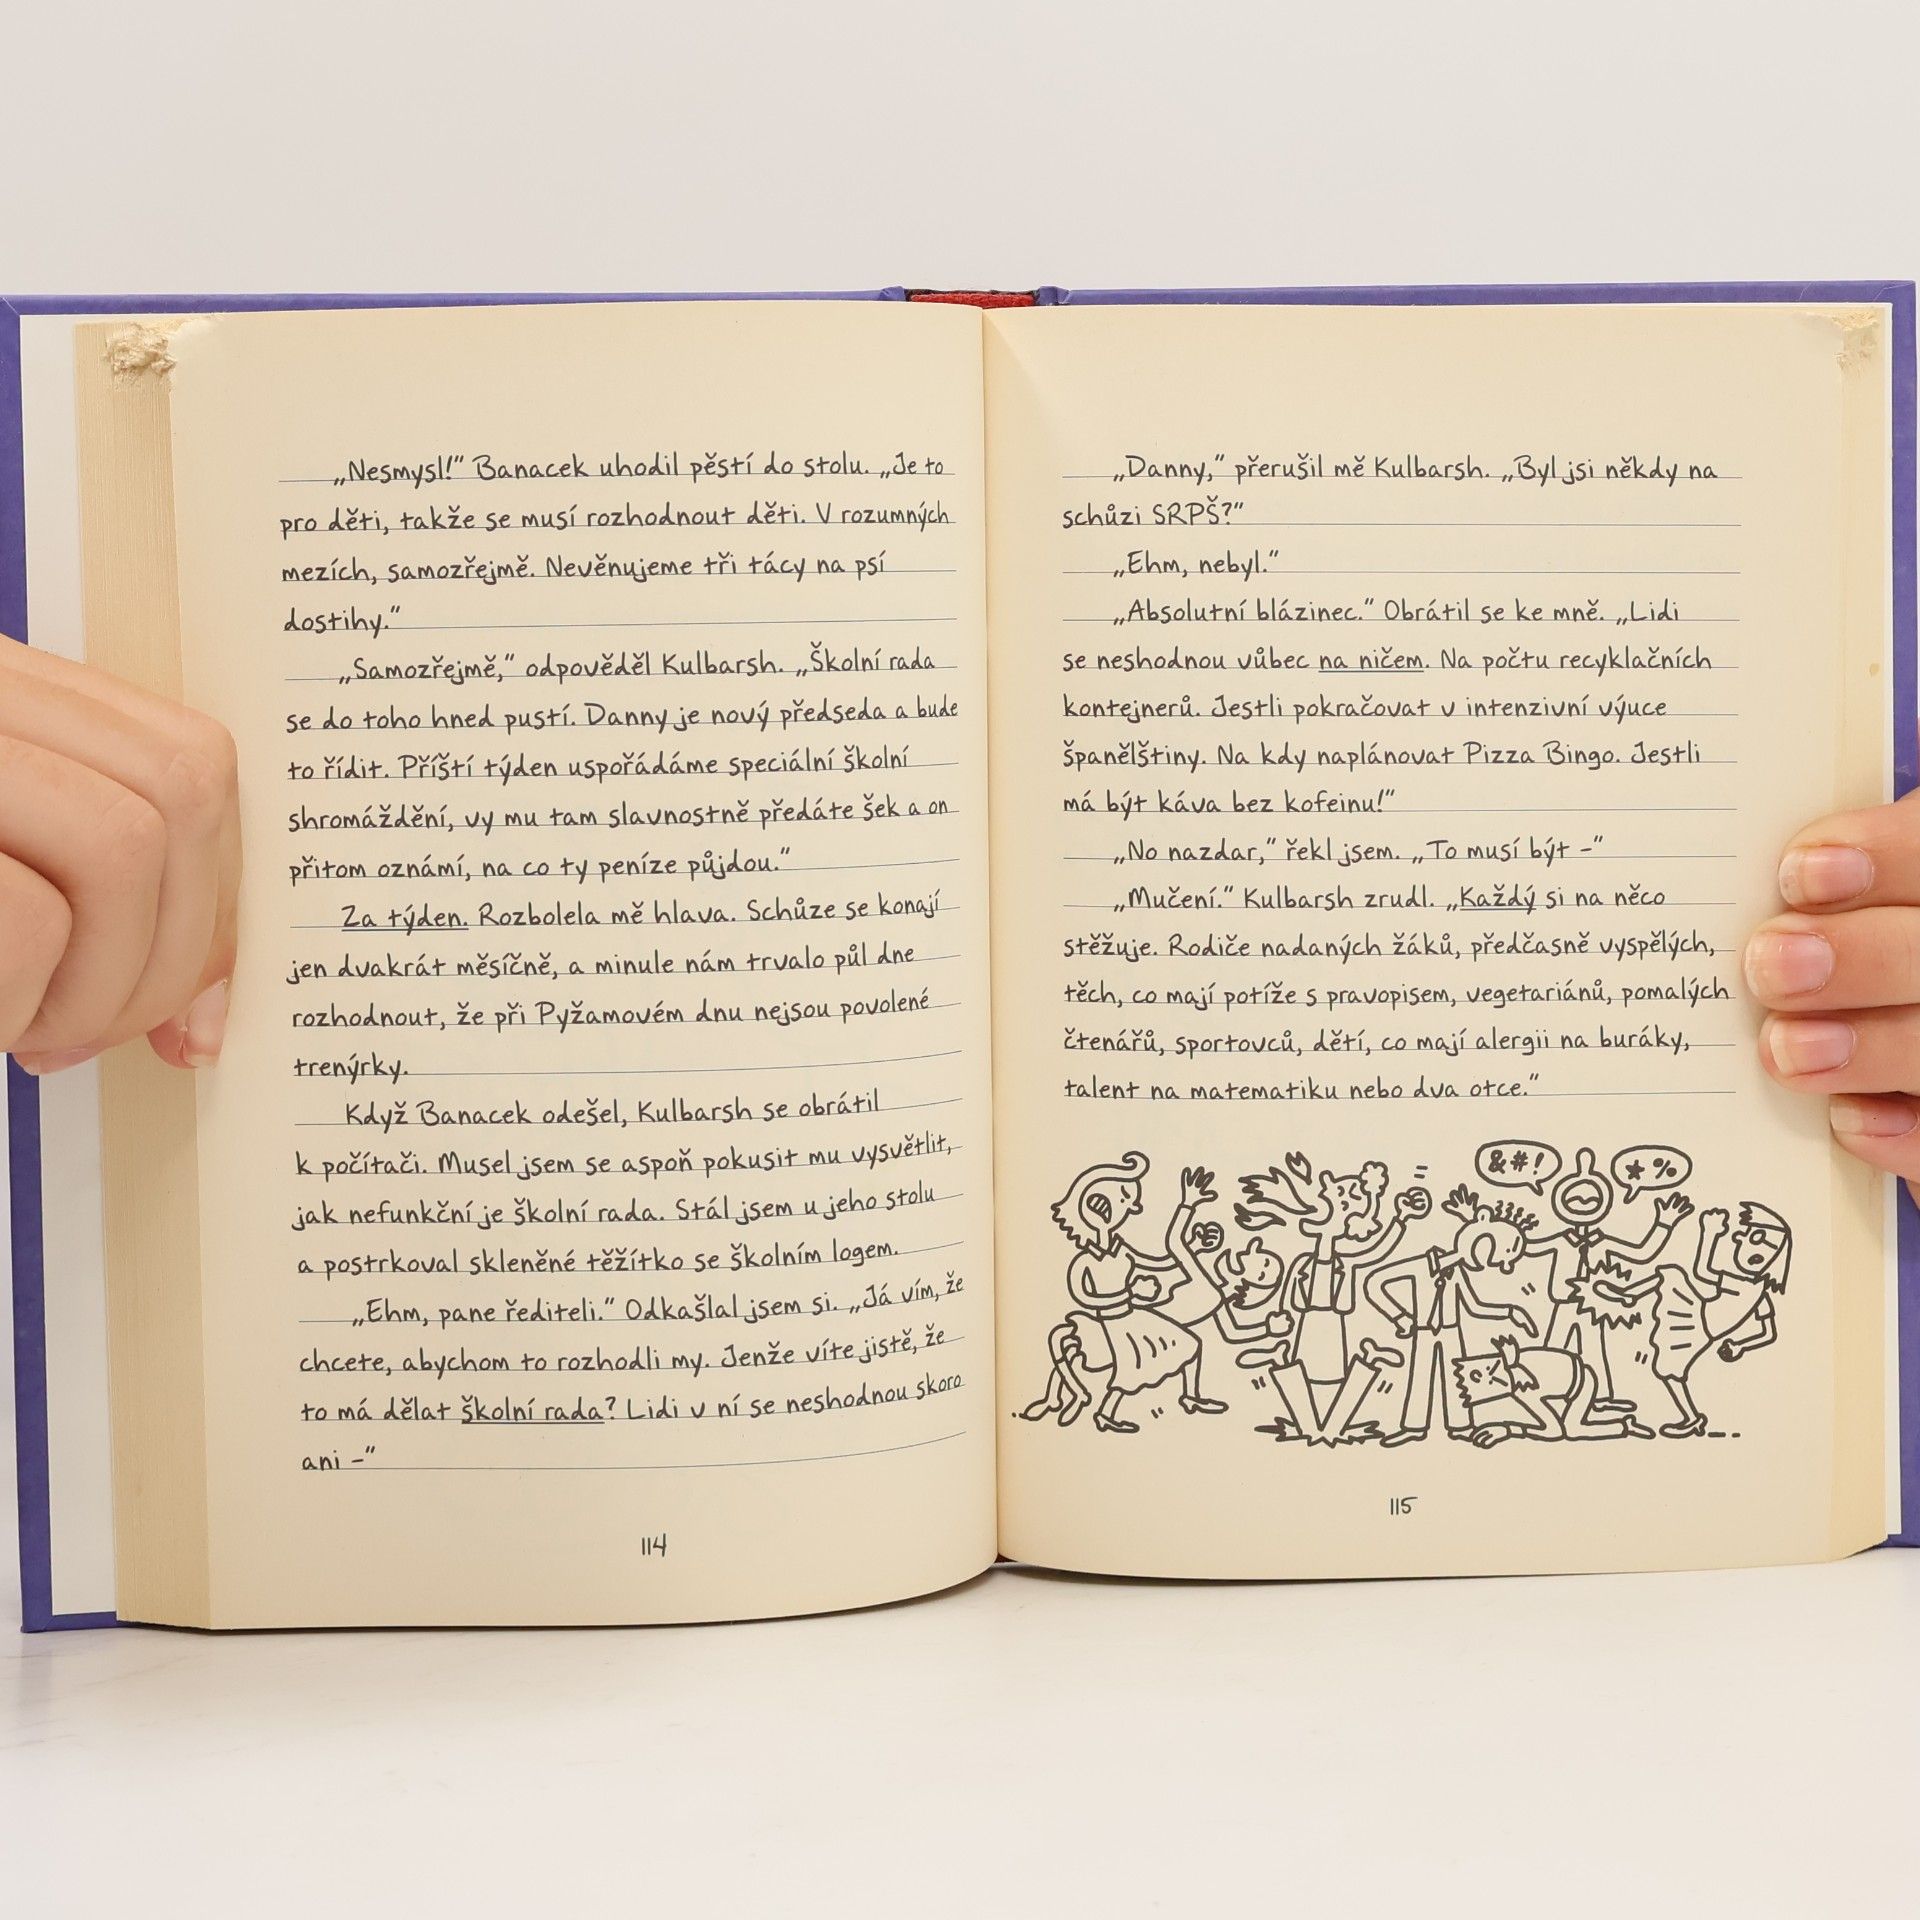 „Nesmysl!“ Banacek uhodil pěstí do stolu. „Je to
pro děti, takže se musí rozhodnout děti. V rozumných
mezích, samozřejmě. Nevěnujeme tři tácy na psí
dostihy.“
„Samozřejmě,“ odpověděl Kulbarsh. „Školní rada
se do toho hned pustí. Danny je nový předseda a bude
to řídit. Příští týden uspořádáme speciální školní
shromáždění, vy mu tam slavnostně předáte šek a on
přitom oznámí, na co ty peníze půjdou.“
Za týden. Rozbolela mě hlava. Schůze se konají
jen dvakrát měsíčně, a minule nám trvalo půl dne
rozhodnout, že při Pyžamovém dnu nejsou povolené
trenýrky.
Když Banacek odešel, Kulbarsh se obrátil
k počítači. Musel jsem se aspoň pokusit mu vysvětlit,
jak nefunkční je školní rada. Stál jsem u jeho stolu
a postrkoval skleněné těžítko se školním logem.
„Ehm, pane řediteli.“ Odkašlal jsem si. „Já vím, že
chcete, abychom to rozhodli my. Jenže víte jistě, že
to má dělat školní rada? Lidi v ní se neshodnou skoro
ani –“
114
„Danny,“ přerušil mě Kulbarsh. „Byl jsi někdy na
schůzi SRPŠ?“
„Ehm, nebyl.“
„Absolutní blázinec.“ Obrátil se ke mně. „Lidi
se neshodnou vůbec na ničem. Na počtu recyklačních
kontejnerů. Jestli pokračovat v intenzivní výuce
španělštiny. Na kdy naplánovat Pizza Bingo. Jestli
má být káva bez kofeinu!“
„No nazdar,“ řekl jsem. „To musí být –“
„Mučení.“ Kulbarsh zrudl. „Každý si na něco
stěžuje. Rodiče nadaných žáků, předčasně vyspělých,
těch, co mají potíže s pravopisem, vegetariánů, pomalých
čtenářů, sportovců, dětí, co mají alergii na buráky,
talent na matematiku nebo dva otce.“
&#!
*%
115